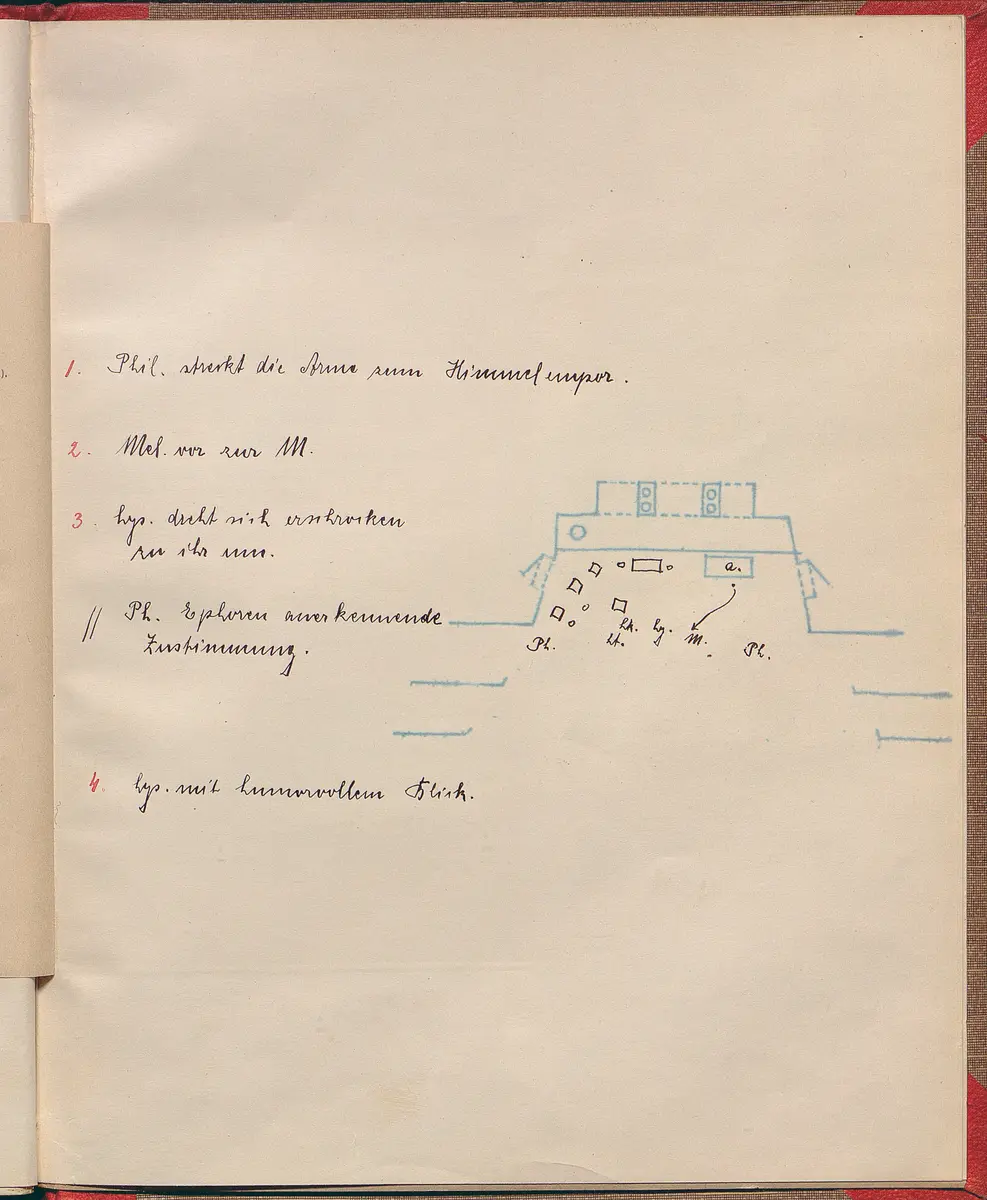 ).
1. Phil. streckt die Arme zum Himmel empor.
2. Mel. vor zur M.
3. Lys. dreht sich erschrocken
zu ihr um.
// Ph. Ephoren anerkennende
Zustimmung.
a.
Lk. Ly. M.
Ph. Lt. Ph.
4. Lys. mit humorvollem Blick.